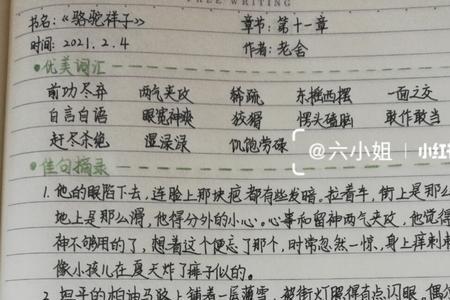 FREE WRITING
书名:《骆驼祥子》 章节:第十一章
时间:2021.2.4 作者:老舍
优美词汇
前功尽弃 两气夹攻 稀疏 东摇西摆 一面之交
自言自语 眼宽神爽 狡猾 愣头磕脑 敢作敢当
赶尽杀绝 湿渌渌 饥饱劳碌
@六小姐 小红
佳句摘录
1.他的眼陷下去,连脸上那块疤都有些发暗。拉着车,街上是那么
地上是那么滑,他得分外的小心。心事和留神两气夹攻,他觉得
神不够用的了,想着这个便忘了那个,时常忽然一惊,身上痒刺刺
像小孩儿在夏天炸了痱子似的。
2.坦平的柏油马路上铺着一层薄雪,被街灯照得有点闪眼,偶